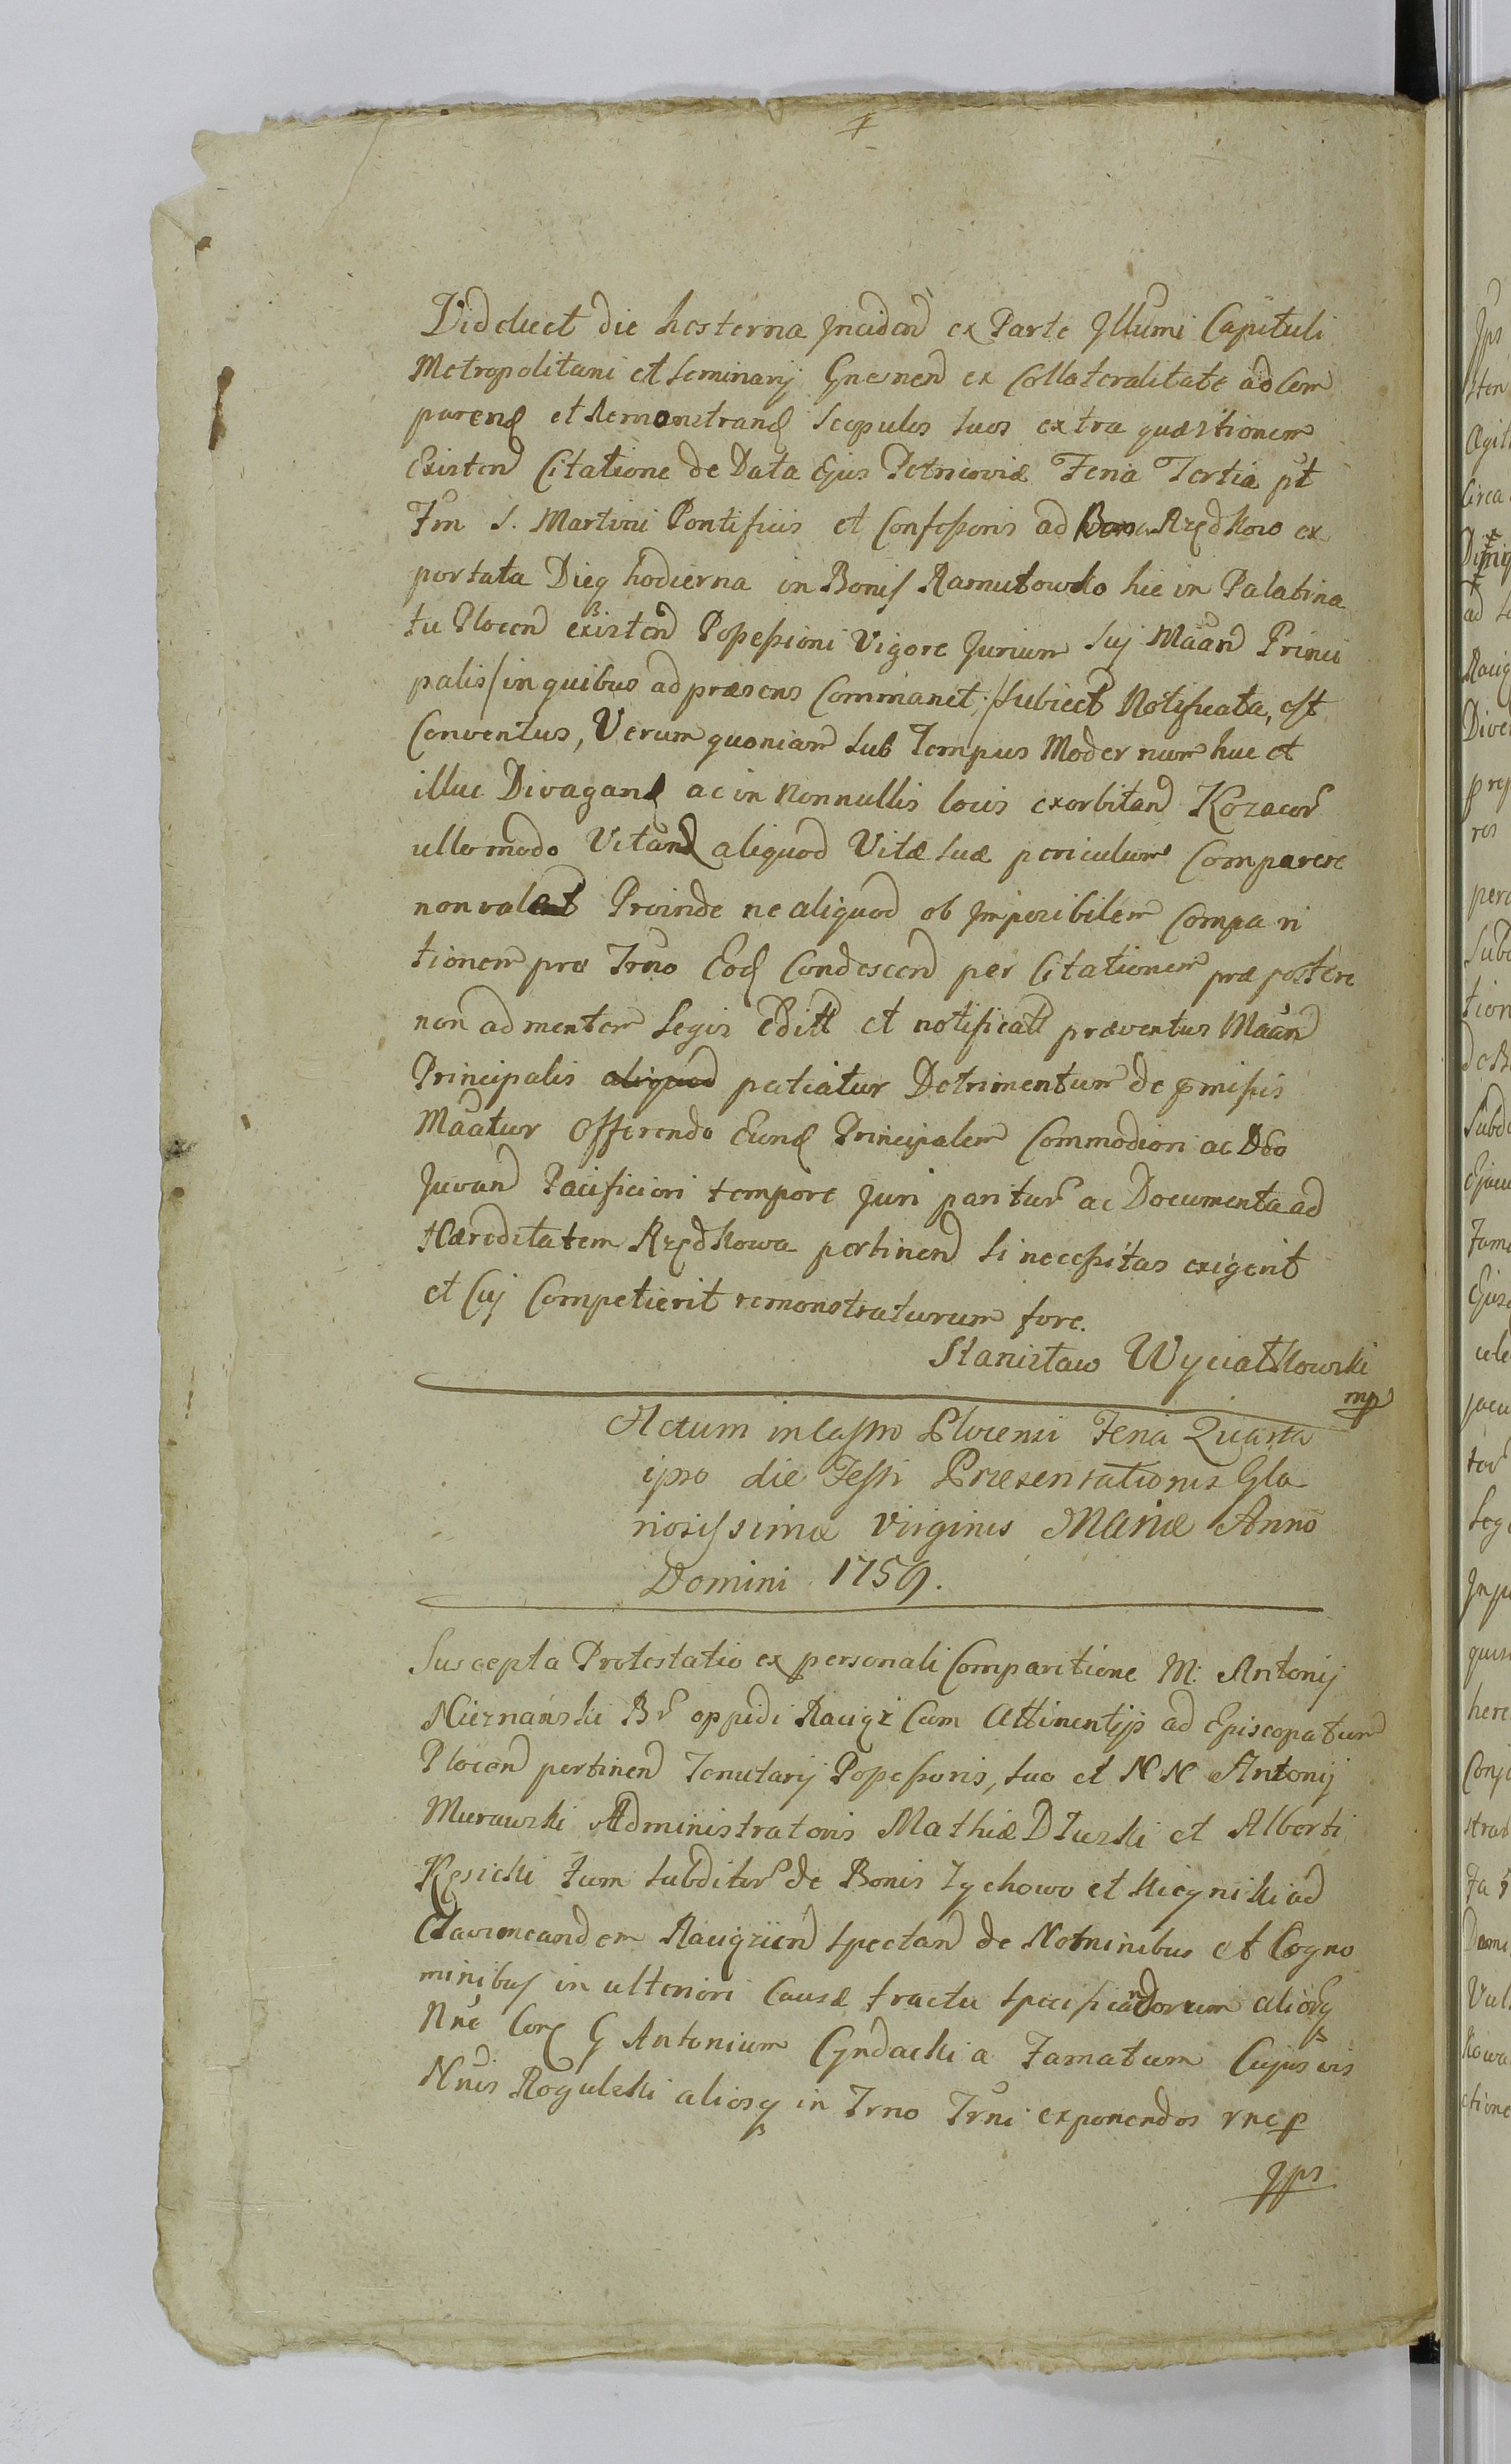 Videlicet die hesterna Inciden ex Parte Illumi Capituli
Metropolitani et Seminarij Gnesnen ex Collateralitate ad Com
paren et Remonstran Scopulos suos extra quæstionem
Existen Citatione de Data Ejus Petricoviæ Feria Tertia pt
Fm S. Martini Pontificis et Confessoris ad Bona Rzędkow ex
portata Dieq hodierna in Bonis Ramutowko hic in Palatina
tu Plocen existen Possessioni Vigore Jurium suj Maan Princi
palis /in quibus ad præsens Commanet./ Subiect Notificata, est
Conventus, Verum quoniam sub Tempus Modernum huc et
illuc Divagan ac in Nonnullis locis exorbitan Kozacor
ullo modo Vitan aliquod Vitæ suæ periculum Comparere
non valet Proinde ne aliquod ob Impossibilem Compari
tionem pro Trno Eod Condescen per Citationem præpostere
non ad mentem Legis Edit et notificat præventus Maan
Principalis aliquod patiatur Detrimentum de pmissis
Maatur Offerendo Eund Principalem Commodiori ac Deo
Juvan Pacificiori tempore Juri paritur ac Documenta ad
Hæreditatem Rzędkowa pertinen si necessitas exigerit
et Cuj Competierit remonstraturum fore.
Stanisław Wyciatkowski
mp
Actum in Castro Plocensi Feria Quarta
ipso die Festi Præsentationis Glo
riosissimæ Virginis Mariæ Anno
Domini 1759.
Suscepta Protestatio ex personali Comparitione M. Antonij
Nieznański Br oppidi Raciąż Cum Attinentijs ad Episcopatum
Plocen pertinen Tenutarij Possessoris, suo et N N Antonij
Murawski Administratoris Mathiæ Dłuski et Alberti
Kęsicki Tum Subditor de Bonis Zychowo et Kiegniki ad
Clavim eandem Raciążien Spectan de Nominibus et Cogno
minibus in ulteriori Causæ tractu specificandorum aliorq
Nne Con G Antonium Cyndacki a Famatum Cujusvis
Nnis Rogulski aliosq in Trno Trni exponendos rnep
Ips